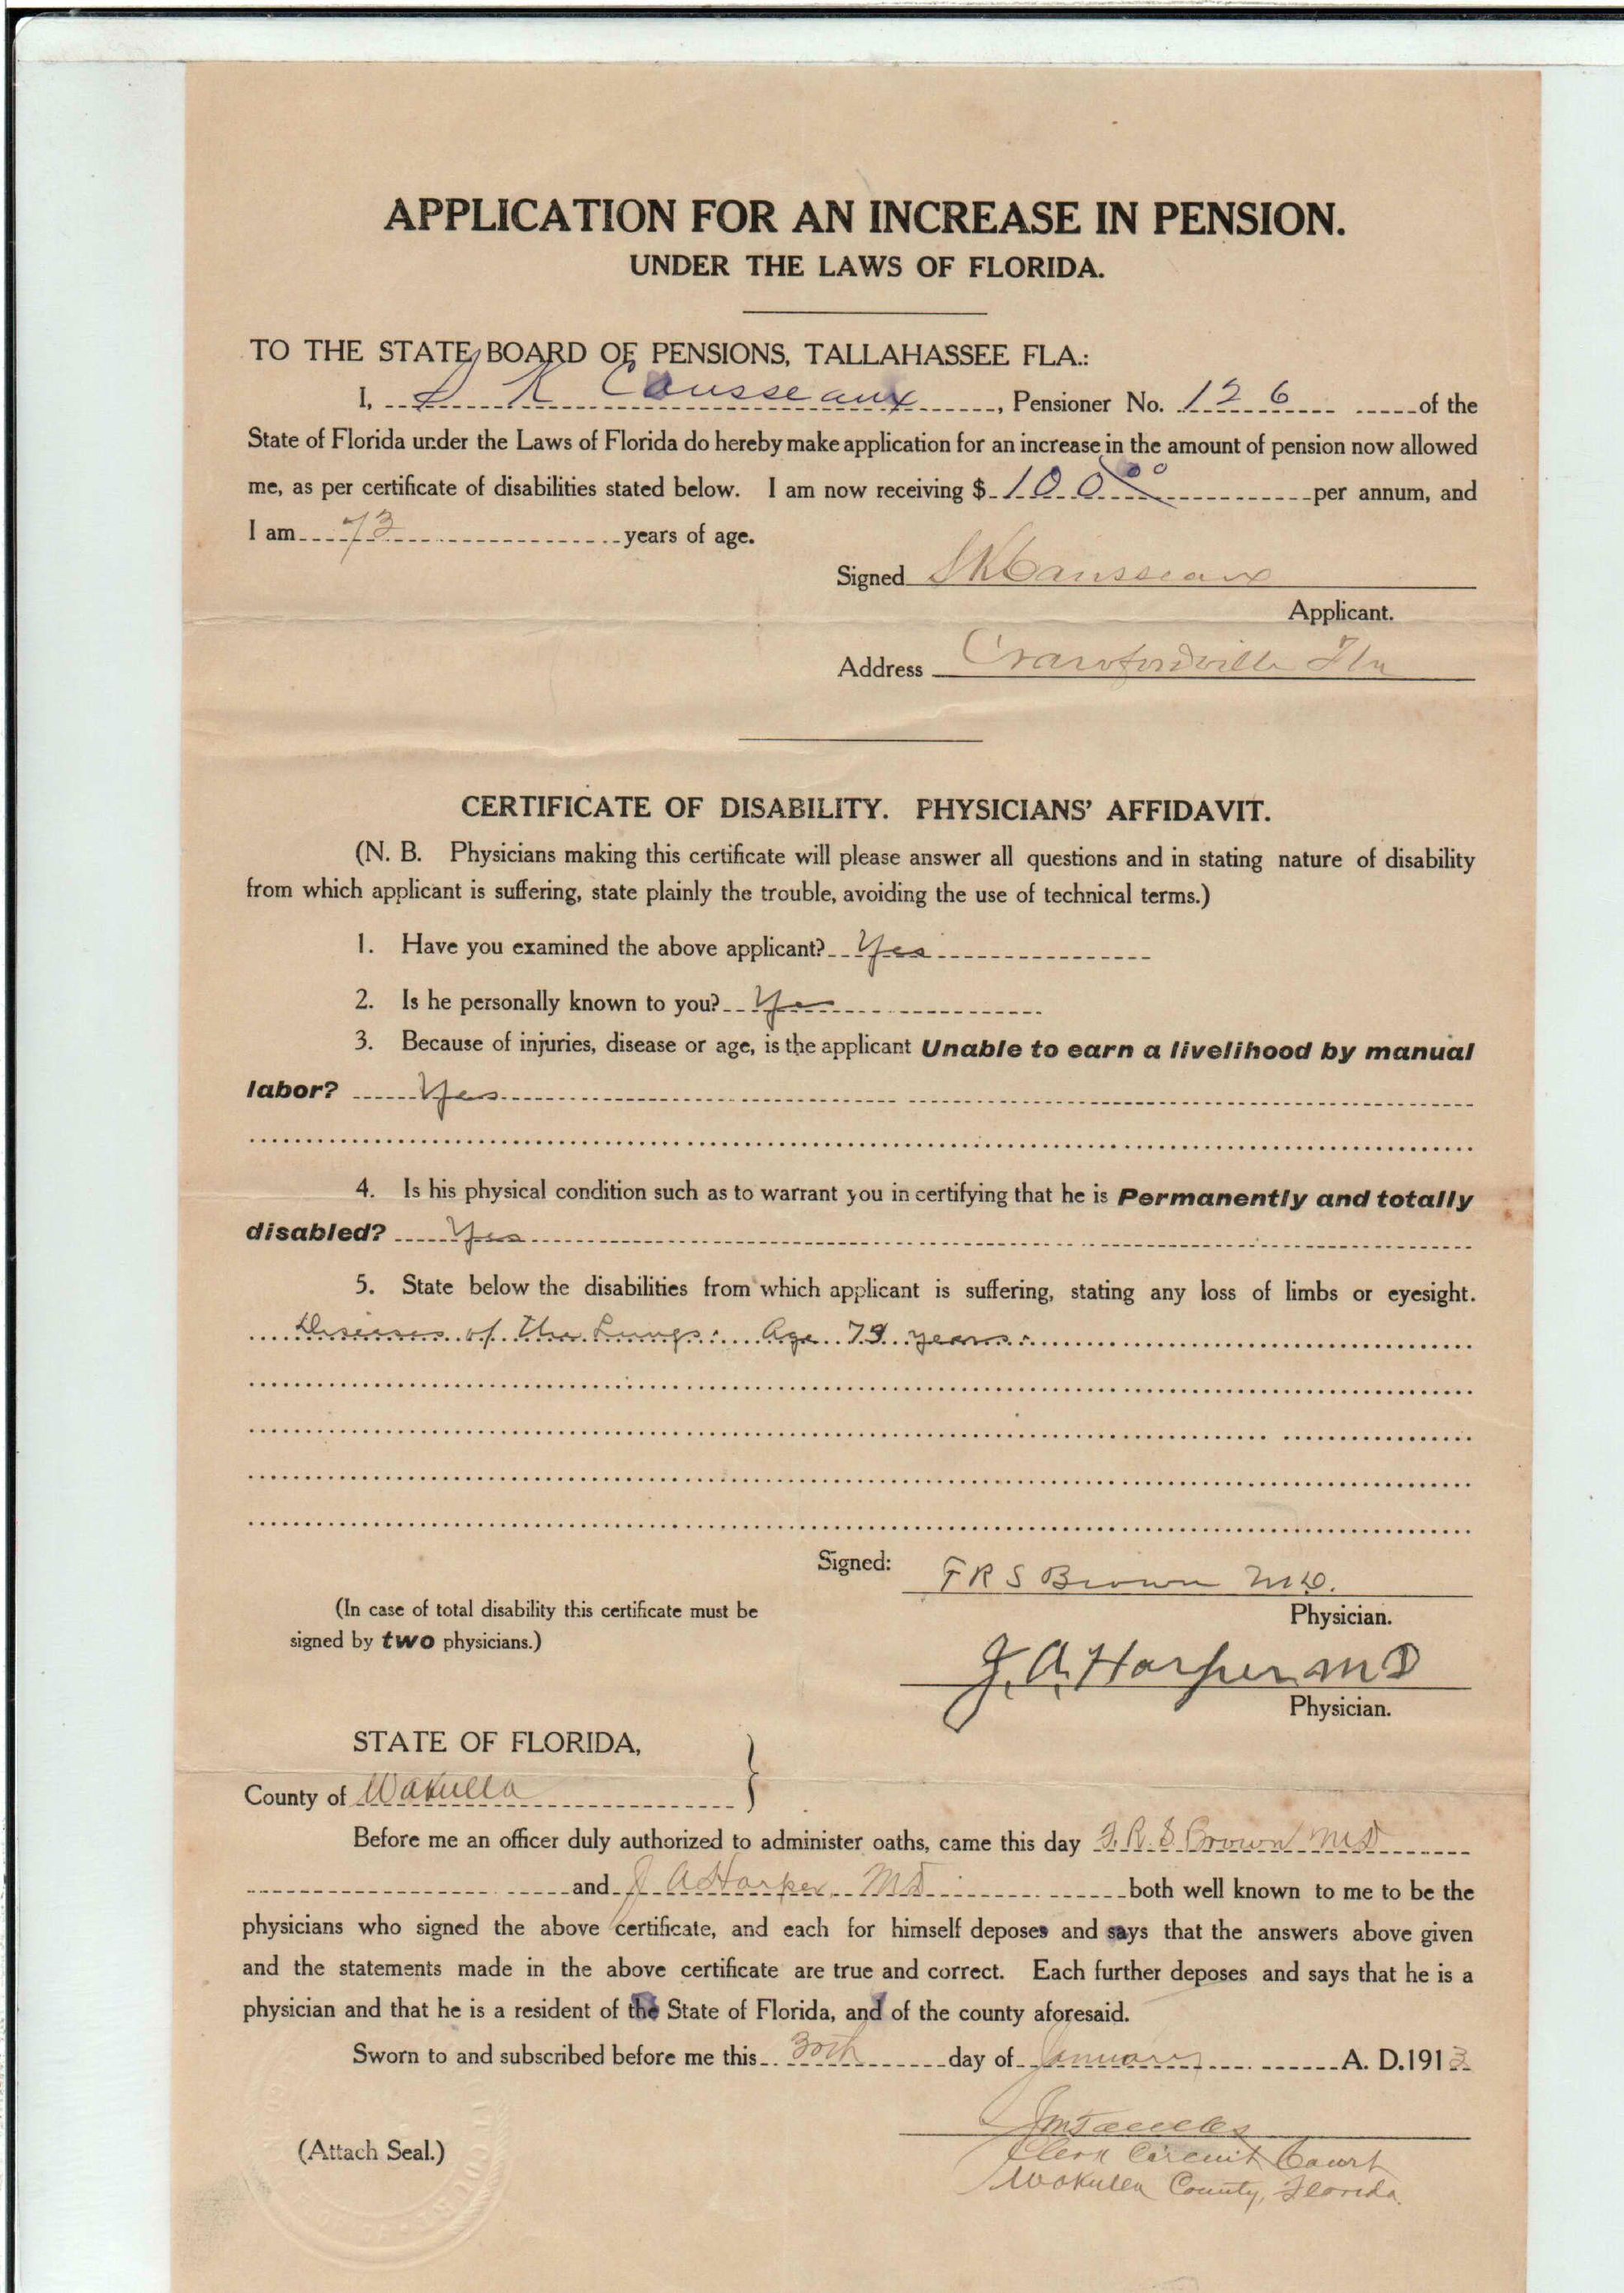 APPLICATION FOR AN INCREASE IN PENSION.
UNDER THE LAWS OF FLORIDA.
TO THE STATE BOARD OF PENSIONS, TALLAHASSEE FLA.:
I, S K Causseaux, Pensioner No. 126 of the
State of Florida under the Laws of Florida do hereby make application for an increase in the amount of pension now allowed
me, as per certificate of disabilities stated below. I am now receiving $ 100 00 per annum, and
I am 73 years of age.
Signed S K Causseaux
Applicant.
Address Crawfordville Fla
CERTIFICATE OF DISABILITY. PHYSICIANS' AFFIDAVIT.
(N. B. Physicians making this certificate will please answer all questions and in stating nature of disability
from which applicant is suffering, state plainly the trouble, avoiding the use of technical terms.)
1. Have you examined the above applicant? Yes
2. Is he personally known to you? Yes
3. Because of injuries, disease or age, is the applicant Unable to earn a livelihood by manual
labor? Yes
4. Is his physical condition such as to warrant you in certifying that he is Permanently and totally
disabled? Yes
5. State below the disabilities from which applicant is suffering, stating any loss of limbs or eyesight.
of the Lungs. Age 73 years.
Signed: F R S Brown M.D.
(In case of total disability this certificate must be
Physician.
signed by two physicians.)
J. A. Harper M D
Physician.
STATE OF FLORIDA,
County of Wakulla
Before me an officer duly authorized to administer oaths, came this day F. R. S. Brown M D
and J A Harper, M D both well known to me to be the
physicians who signed the above certificate, and each for himself deposes and says that the answers above given
and the statements made in the above certificate are true and correct. Each further deposes and says that he is a
physician and that he is a resident of the State of Florida, and of the county aforesaid.
Sworn to and subscribed before me this 30th day of January A. D. 1913
(Attach Seal.)
Clerk Circuit Court
Wakulla County, Florida.